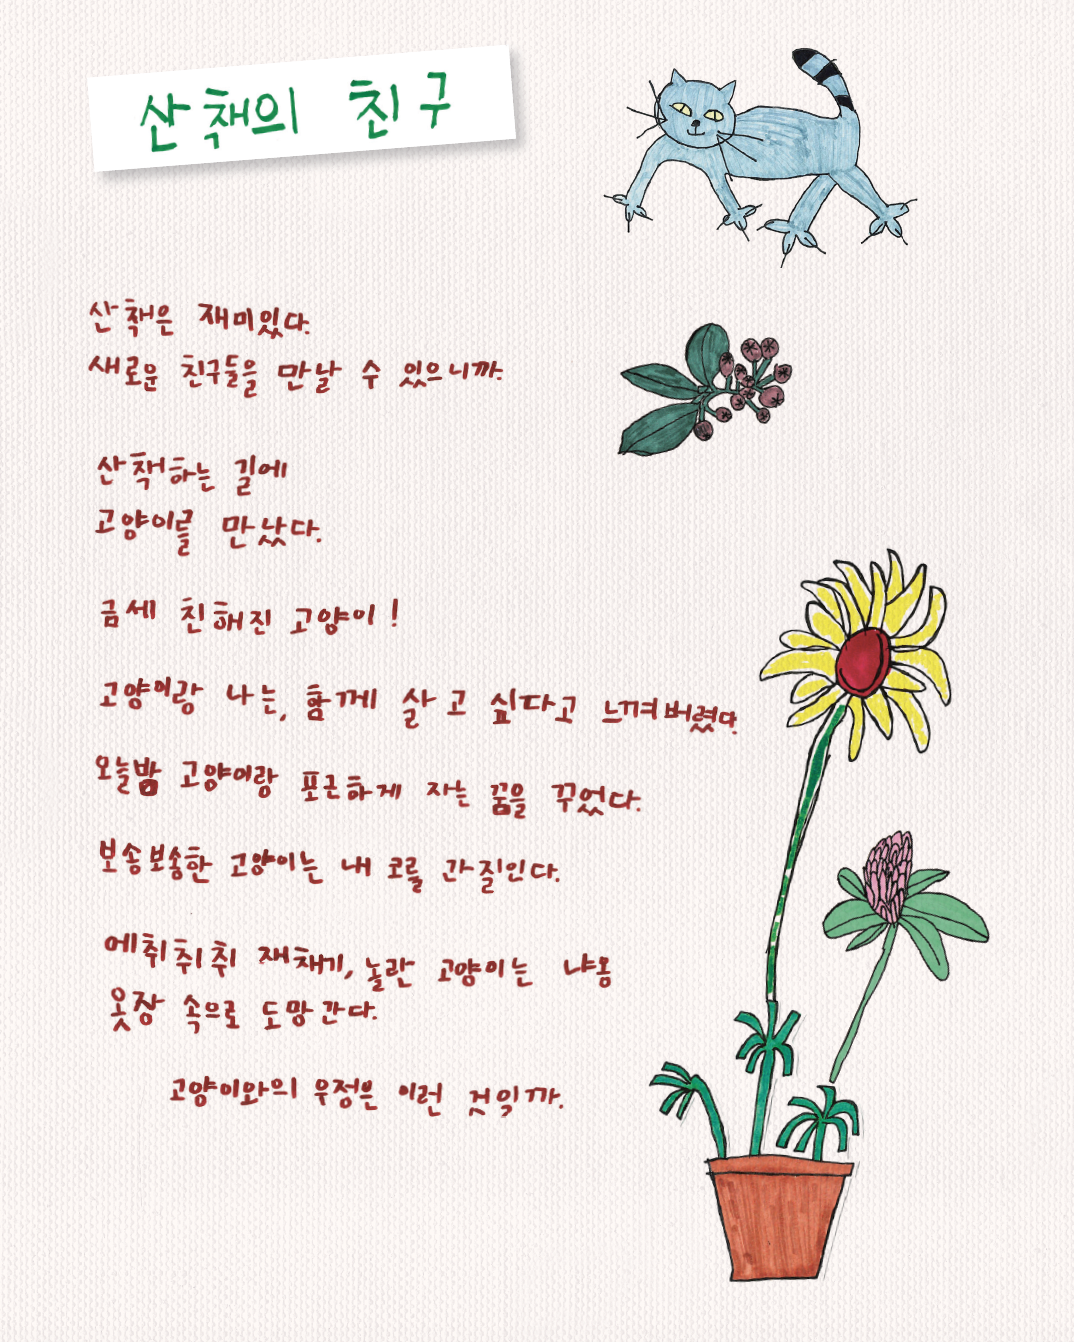 산책의 친구
산책은 재미있다.
새로운 친구들을 만날 수 있으니까.
산책하는 길에
고양이를 만났다.
금세 친해진 고양이!
고양이랑 나는, 함께 살고 싶다고 느껴버렸다.
오늘밤 고양이랑 포근하게 자는 꿈을 꾸었다.
보송보송한 고양이는 내 코를 간질인다.
에취취취 재채기, 놀란 고양이는 냐옹
옷장 속으로 도망간다.
고양이와의 우정은 이런 것일까.